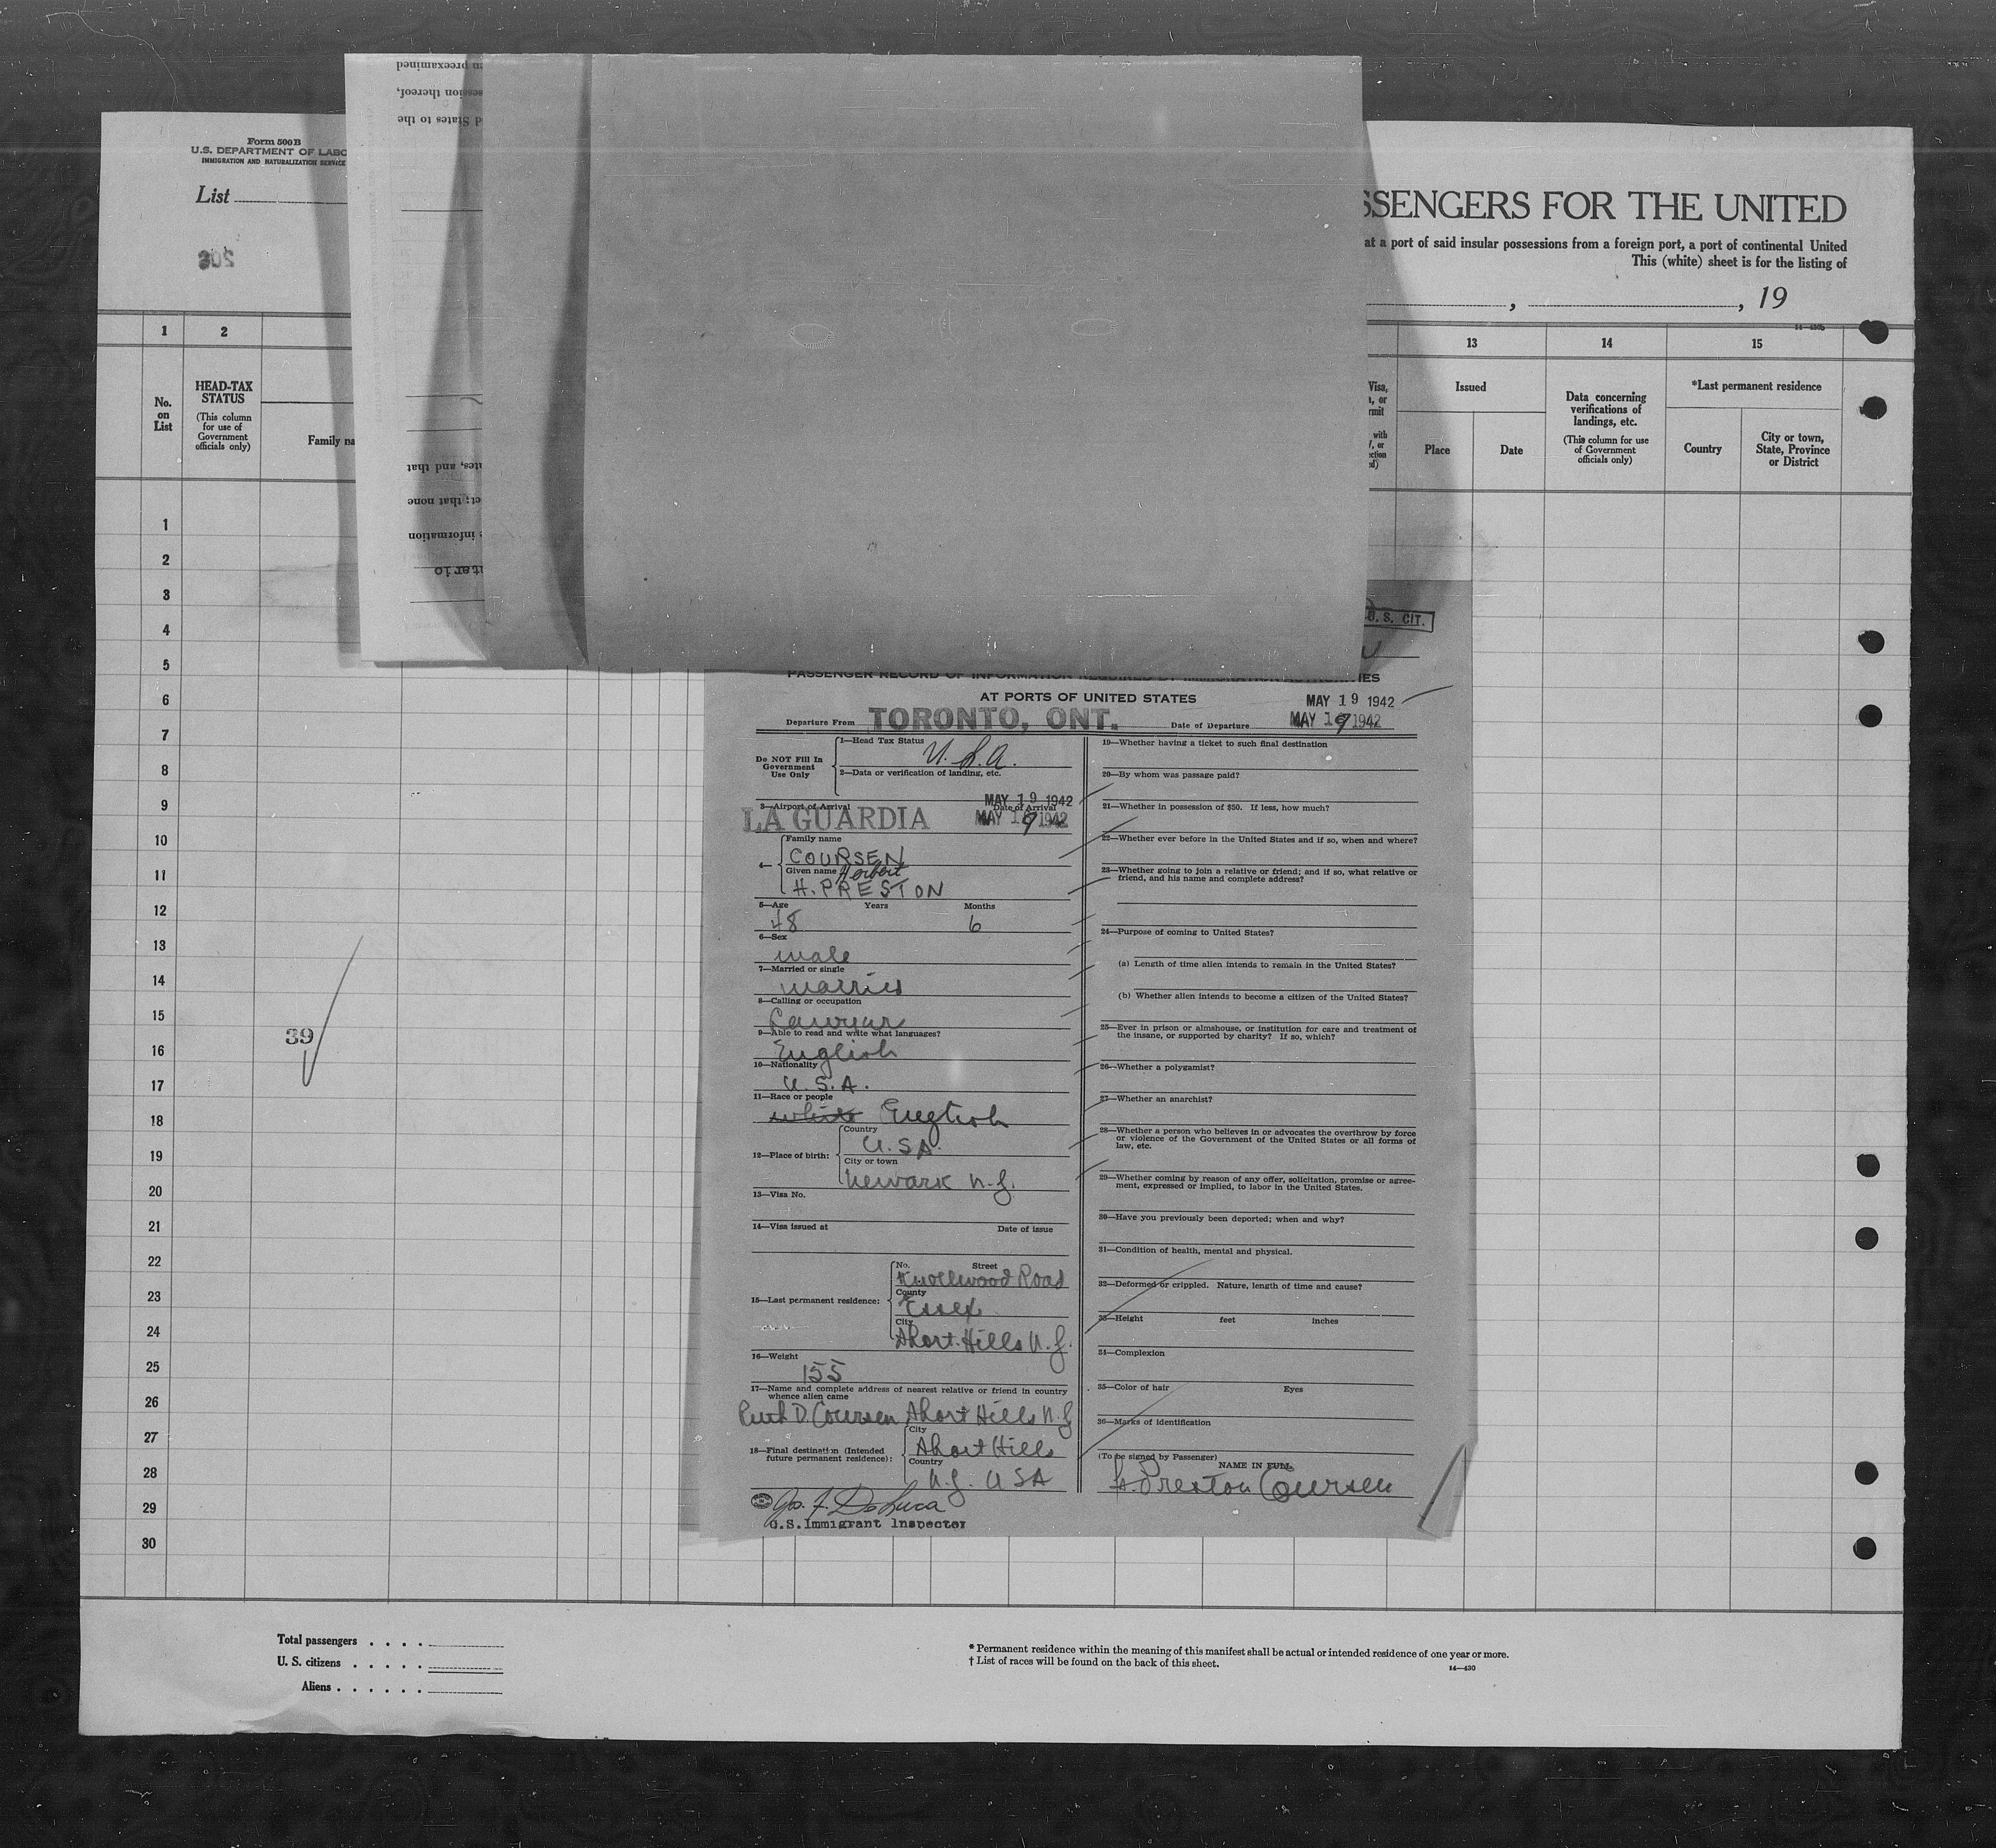 Form 500B
U.S. DEPARTMENT OF LABO
IMMIGRATION AND NATURALIZATION SERVICE
List
SSENGERS FOR THE UNITED
at a port of said insular possessions from a foreign port, a port of continental United
This (white) sheet is for the listing of
, , 19
1 2 13 14 15
No. on List
HEAD-TAX STATUS
(This column for use of Government officials only)
Family na
Issued
Place Date
Data concerning verifications of landings, etc.
(This column for use of Government officials only)
*Last permanent residence
Country
City or town, State, Province or District
n preexamined
ssion thereof,
d States to the
tes, and that
ct; that none
e information
ntario
1
2
3
4
5
6
7
8
9
10
11
12
13
14
15
16
17
18
19
20
21
22
23
24
25
26
27
28
29
30
39
U. S. CIT.
PASSENGER RECORD OF INFORMATION REQUIRED BY IMMIGRATION AUTHORITIES
AT PORTS OF UNITED STATES
MAY 19 1942
Departure From TORONTO, ONT. Date of Departure MAY 19 1942
Do NOT Fill In Government Use Only
1—Head Tax Status U.S.A.
2—Data or verification of landing, etc.
MAY 19 1942
3—Airport of Arrival Date of Arrival
LA GUARDIA MAY 19 1942
4— Family name
COURSEN
Given name Herbert
H. PRESTON
5—Age Years Months
48 6
6—Sex
male
7—Married or single
married
8—Calling or occupation
Lawyer
9—Able to read and write what languages?
English
10—Nationality
U.S.A.
11—Race or people
white English
12—Place of birth: Country
U.SA.
City or town
Newark N.J.
13—Visa No.
14—Visa issued at Date of issue
15—Last permanent residence: No. Street
Knollwood Road
County
Essex
City
Short Hills N.J.
16—Weight
155
17—Name and complete address of nearest relative or friend in country whence alien came
Ruth D. Coursen Short Hills N.J
18—Final destination (Intended future permanent residence): City
Short Hills
Country
N.J. USA
Jos. F. DeLuca
U.S. Immigrant Inspector
19—Whether having a ticket to such final destination
20—By whom was passage paid?
21—Whether in possession of $50. If less, how much?
22—Whether ever before in the United States and if so, when and where?
23—Whether going to join a relative or friend; and if so, what relative or
friend, and his name and complete address?
24—Purpose of coming to United States?
(a) Length of time alien intends to remain in the United States?
(b) Whether alien intends to become a citizen of the United States?
25—Ever in prison or almshouse, or institution for care and treatment of
the insane, or supported by charity? If so, which?
26—Whether a polygamist?
27—Whether an anarchist?
28—Whether a person who believes in or advocates the overthrow by force
or violence of the Government of the United States or all forms of
law, etc.
29—Whether coming by reason of any offer, solicitation, promise or agree-
ment, expressed or implied, to labor in the United States.
30—Have you previously been deported; when and why?
31—Condition of health, mental and physical.
32—Deformed or crippled. Nature, length of time and cause?
33—Height feet inches
34—Complexion
35—Color of hair Eyes
36—Marks of identification
(To be signed by Passenger) NAME IN FULL
H. Preston Coursen
Total passengers . . . .
U. S. citizens . . . . .
Aliens . . . . . .
* Permanent residence within the meaning of this manifest shall be actual or intended residence of one year or more.
† List of races will be found on the back of this sheet.
14—430